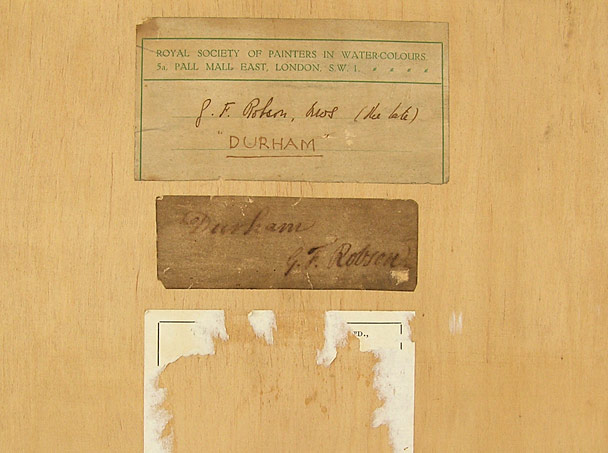 ROYAL SOCIETY OF PAINTERS IN WATER-COLOURS
5a, PALL MALL EAST, LONDON, S.W. 1.
G. F. Robson, RWS (the late)
"DURHAM"
Durham
G. F. Robson